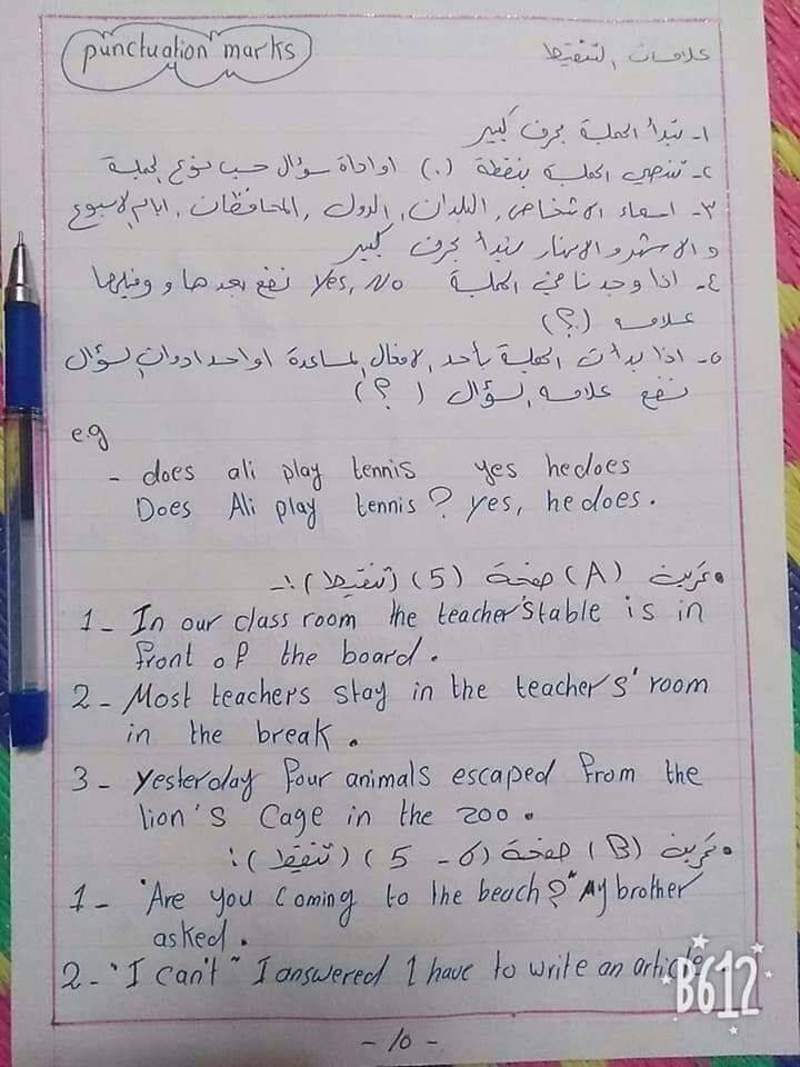 punctuation marks
علامات التنقيط
١- تبدأ الجملة بحرف كبير
٢- تنتهي الجملة بنقطة (.) او اداة سؤال حسب نوع الجملة
٣- اسماء الاشخاص, البلدان, الدول, المحافظات, ايام الاسبوع
و الاشهر و الانهار تبدأ بحرف كبير
٤- اذا وجدنا في الجملة Yes, No نضع بعدها و وقبلها
علامه (؟)
٥- اذا بدأت الجملة بأحد الافعال المساعدة او احد ادوات السؤال
نضع علامه السؤال (؟)
e.g
- does ali play tennis yes he does
Does Ali play tennis? yes, he does.
• تمرين (A) صفحة (5) (تنقيط):-
1- In our class room the teacher's table is in
front of the board.
2- Most teachers stay in the teacher's' room
in the break.
3- yesterday four animals escaped from the
lion's Cage in the zoo.
• تمرين (B) صفحة (6 - 5) (تنقيط):
1- "Are you coming to the beach?" My brother
asked.
2- "I can't" I answered I have to write an article.
B612
- 10 -